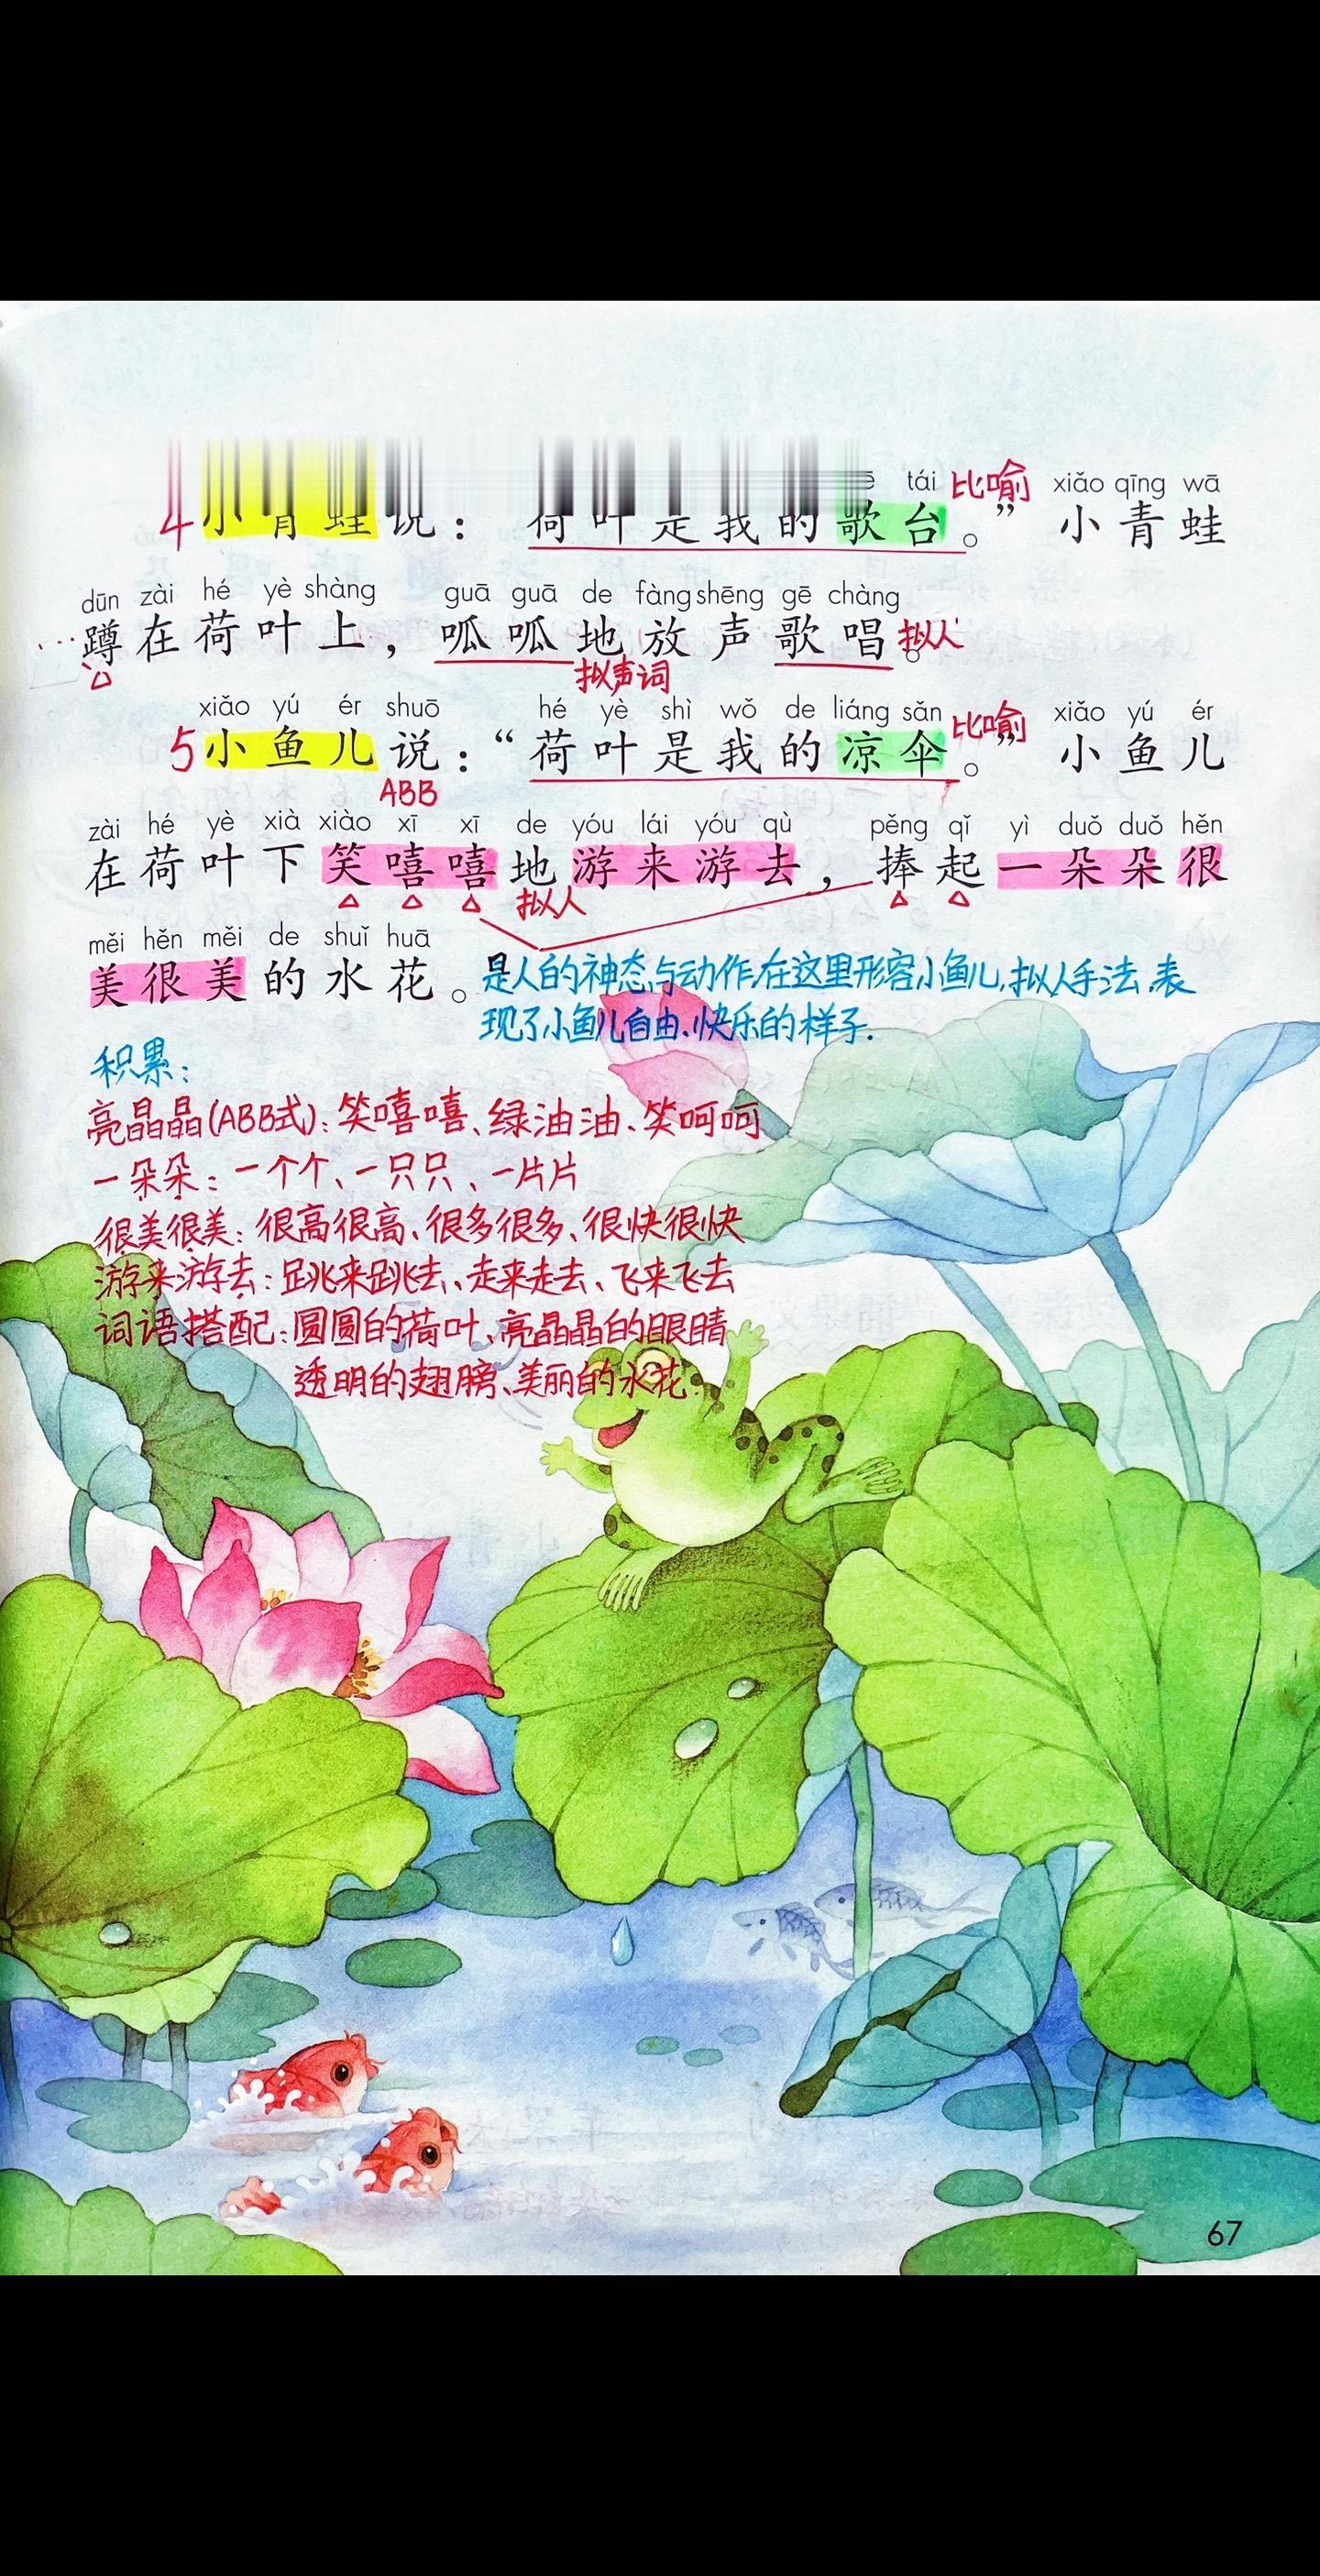 ē tái 比喻 xiǎo qīng wā
4 小青蛙说：荷叶是我的歌台。”小青蛙
dūn zài hé yè shàng guā guā de fàng shēng gē chàng
蹲在荷叶上，呱呱地放声歌唱。拟人
拟声词
xiǎo yú ér shuō hé yè shì wǒ de liáng sǎn 比喻 xiǎo yú ér
5 小鱼儿说：“荷叶是我的凉伞。”小鱼儿
ABB
zài hé yè xià xiào xī xī de yóu lái yóu qù pěng qǐ yì duǒ duǒ hěn
在荷叶下笑嘻嘻地游来游去，捧起一朵朵很
拟人
měi hěn měi de shuǐ huā
美很美的水花。是人的神态与动作,在这里形容小鱼儿,拟人手法,表
现了小鱼儿自由、快乐的样子.
积累：
亮晶晶(ABB式)：笑嘻嘻、绿油油、笑呵呵
一朵朵：一个个、一只只、一片片
很美很美：很高很高、很多很多、很快很快
游来游去：跳来跳去、走来走去、飞来飞去
词语搭配：圆圆的荷叶、亮晶晶的眼睛
透明的翅膀、美丽的水花.
67